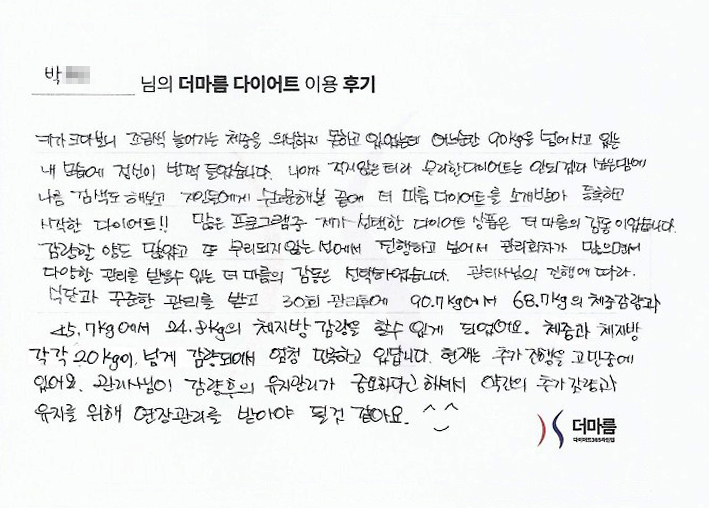 박
님의 더마름 다이어트 이용 후기
키가 크다보니 조금씩 늘어가는 체중을 의식하지 못하고 있었는데 어느순간 90kg을 넘어서고 있는
내 모습에 정신이 번쩍 들었습니다. 나이가 적지않은 터라 무리한다이어트는 안되겠다 싶은맘에
나름 검색도 해보고 지인들에게 수소문해본 끝에 더 마름 다이어트를 소개받아 등록하고
시작한 다이어트!! 많은 프로그램중 제가 선택한 다이어트 상품은 더 마름의 감동이었습니다.
감량할 양도 많았고 또 무리되지 않는 선에서 진행하고 싶어서 관리회차가 많으면서
다양한 관리를 받을수 있는 더 마름의 감동을 선택하였습니다. 관리사님의 진행에 따라.
식단과 꾸준한 관리를 받고 30회 관리후에 90.7kg에서 68.7kg의 체중감량과
45.7kg에서 24.8kg의 체지방 감량을 할수 있게 되었어요. 체중과 체지방
각각 20kg이 넘게 감량되어서 엄청 만족하고 있답니다. 현재는 추가 진행을 고민중에
있어요. 관리사님이 감량후의 유지관리가 중요하다고 하셔서 약간의 추가 감량과
유지를 위해 연장관리를 받아야 될것 같아요. ^^
더마름
다이어트365라인업